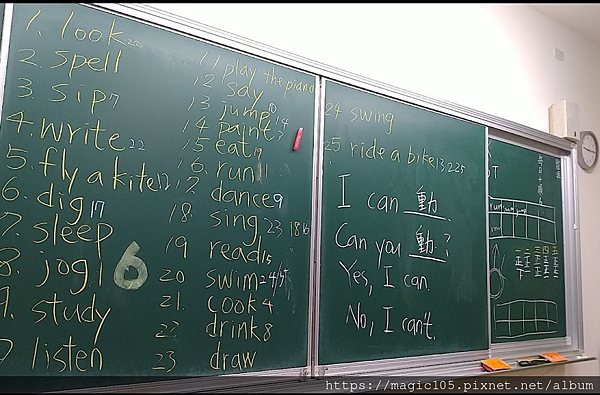 1. look
2. spell
3. sip 7
4. write 22
5. fly a kite 12
6. dig 17
7. sleep
8. jog
9. study
listen
6
11 play the piano
12 say
13 jump
14 paint
15 eat
16. run
17 dance 9
18. sing 23 18 16
19 read 15
20 swim
21. cook 4
22 drink 8
23 draw
24 swing
25 ride a bike 13, 2 25
I can 動.
Can you 動?
Yes, I can.
No, I can't.
T
https://magic105.pixnet.net/album